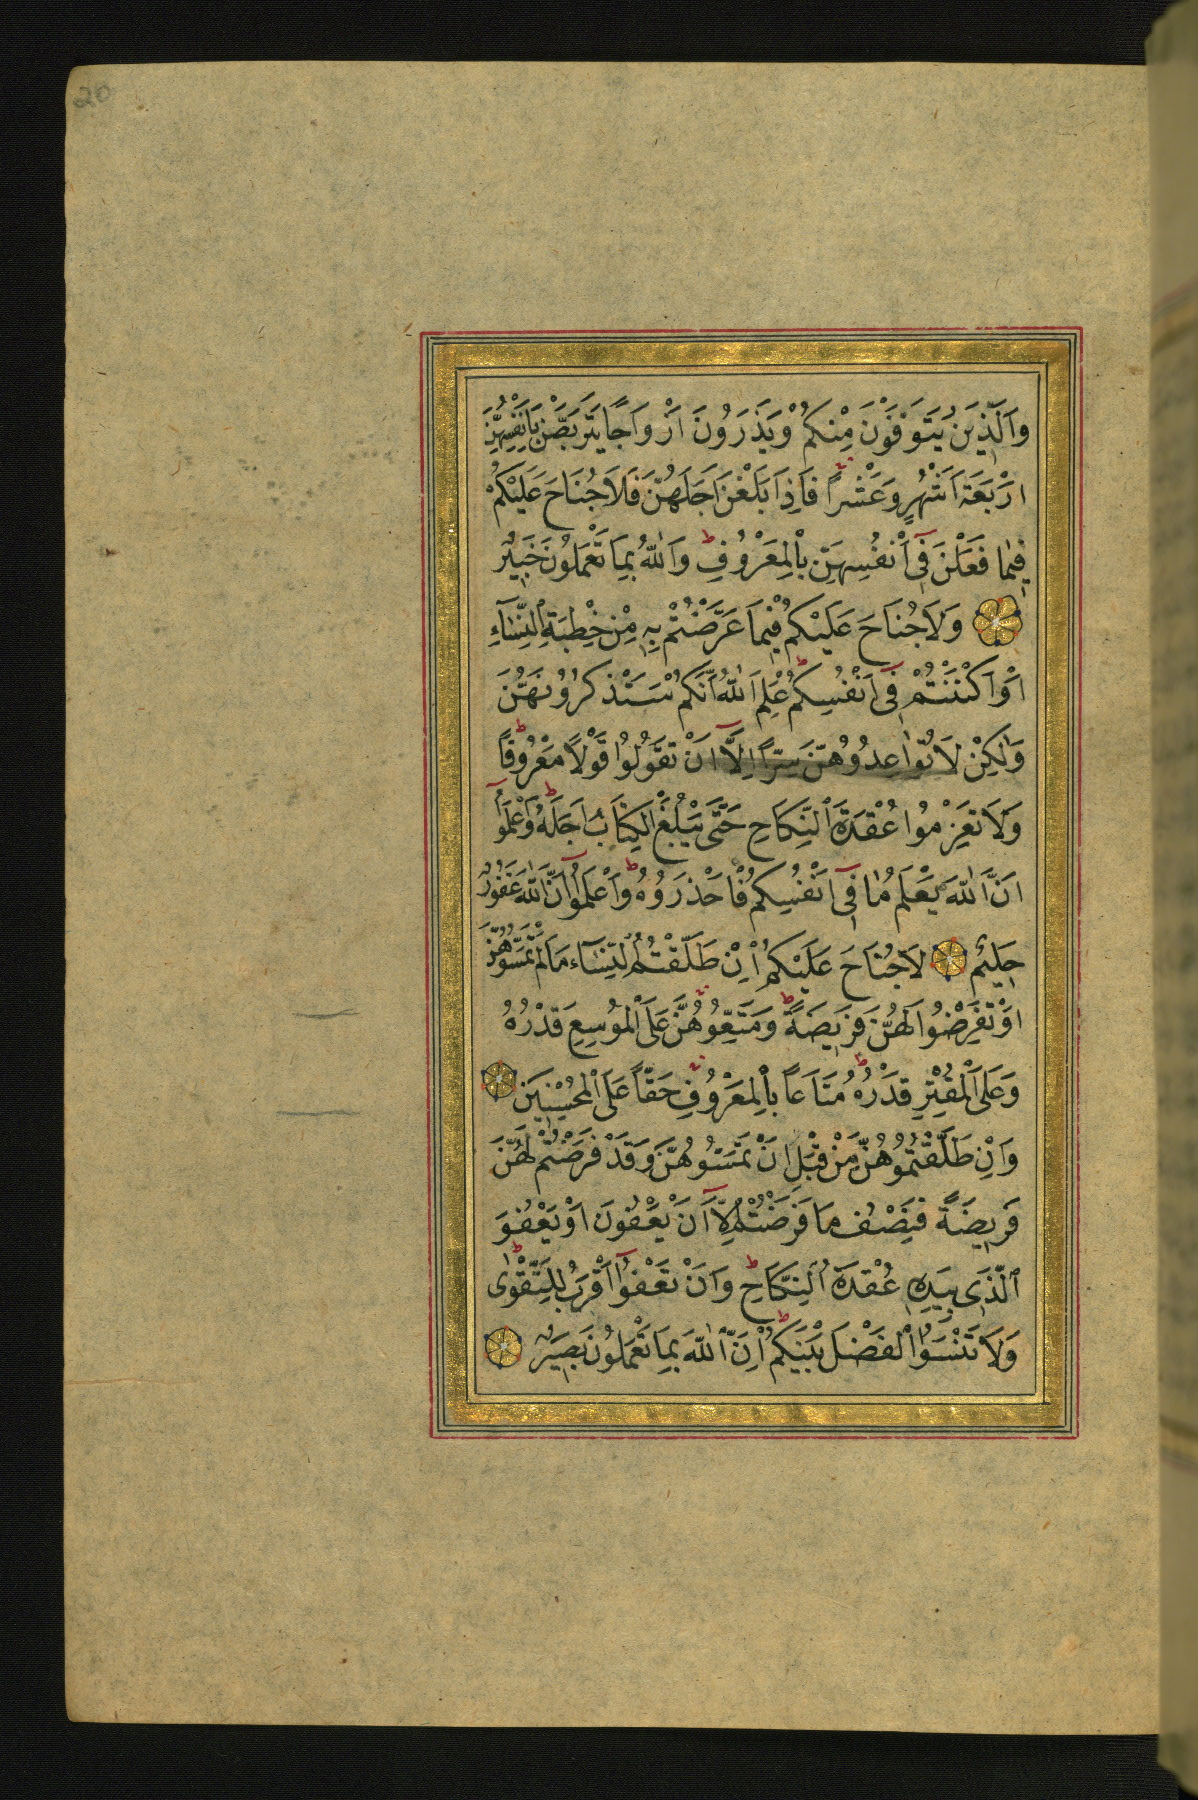 20
وَالَّذِينَ يُتَوَفَّوْنَ مِنْكُمْ وَيَذَرُونَ اَزْوَاجًا يَتَرَبَّصْنَ بِاَنْفُسِهِنَّ
اَرْبَعَةَ اَشْهُرٍ وَعَشْرًا فَاِذَا بَلَغْنَ اَجَلَهُنَّ فَلَا جُنَاحَ عَلَيْكُمْ
فِيمَا فَعَلْنَ فِى اَنْفُسِهِنَّ بِالْمَعْرُوفِ وَاللّٰهُ بِمَا تَعْمَلُونَ خَبِيرٌ
وَلَا جُنَاحَ عَلَيْكُمْ فِيمَا عَرَّضْتُمْ بِهِ مِنْ خِطْبَةِ النِّسَآءِ
اَوْ اَكْنَنْتُمْ فِى اَنْفُسِكُمْ عَلِمَ اللّٰهُ اَنَّكُمْ سَتَذْكُرُونَهُنَّ
وَلٰكِنْ لَا تُوَاعِدُوهُنَّ سِرًّا اِلَّا اَنْ تَقُولُوا قَوْلًا مَعْرُوفًا
وَلَا تَعْزِمُوا عُقْدَةَ النِّكَاحِ حَتَّى يَبْلُغَ الْكِتَابُ اَجَلَهُ وَاعْلَمُوا
اَنَّ اللّٰهَ يَعْلَمُ مَا فِى اَنْفُسِكُمْ فَاحْذَرُوهُ وَاعْلَمُوا اَنَّ اللّٰهَ غَفُورٌ
حَلِيمٌ لَا جُنَاحَ عَلَيْكُمْ اِنْ طَلَّقْتُمُ النِّسَآءَ مَا لَمْ تَمَسُّوهُنَّ
اَوْ تَفْرِضُوا لَهُنَّ فَرِيضَةً وَمَتِّعُوهُنَّ عَلَى الْمُوسِعِ قَدْرُهُ
وَعَلَى الْمُقْتِرِ قَدْرُهُ مَتَاعًا بِالْمَعْرُوفِ حَقًّا عَلَى الْمُحْسِنِينَ
وَاِنْ طَلَّقْتُمُوهُنَّ مِنْ قَبْلِ اَنْ تَمَسُّوهُنَّ وَقَدْ فَرَضْتُمْ لَهُنَّ
فَرِيضَةً فَنِصْفُ مَا فَرَضْتُمْ اِلَّا اَنْ يَعْفُونَ اَوْ يَعْفُوَ
الَّذِى بِيَدِهِ عُقْدَةُ النِّكَاحِ وَاَنْ تَعْفُوا اَقْرَبُ لِلتَّقْوٰى
وَلَا تَنْسَوُا الْفَضْلَ بَيْنَكُمْ اِنَّ اللّٰهَ بِمَا تَعْمَلُونَ بَصِيرٌ